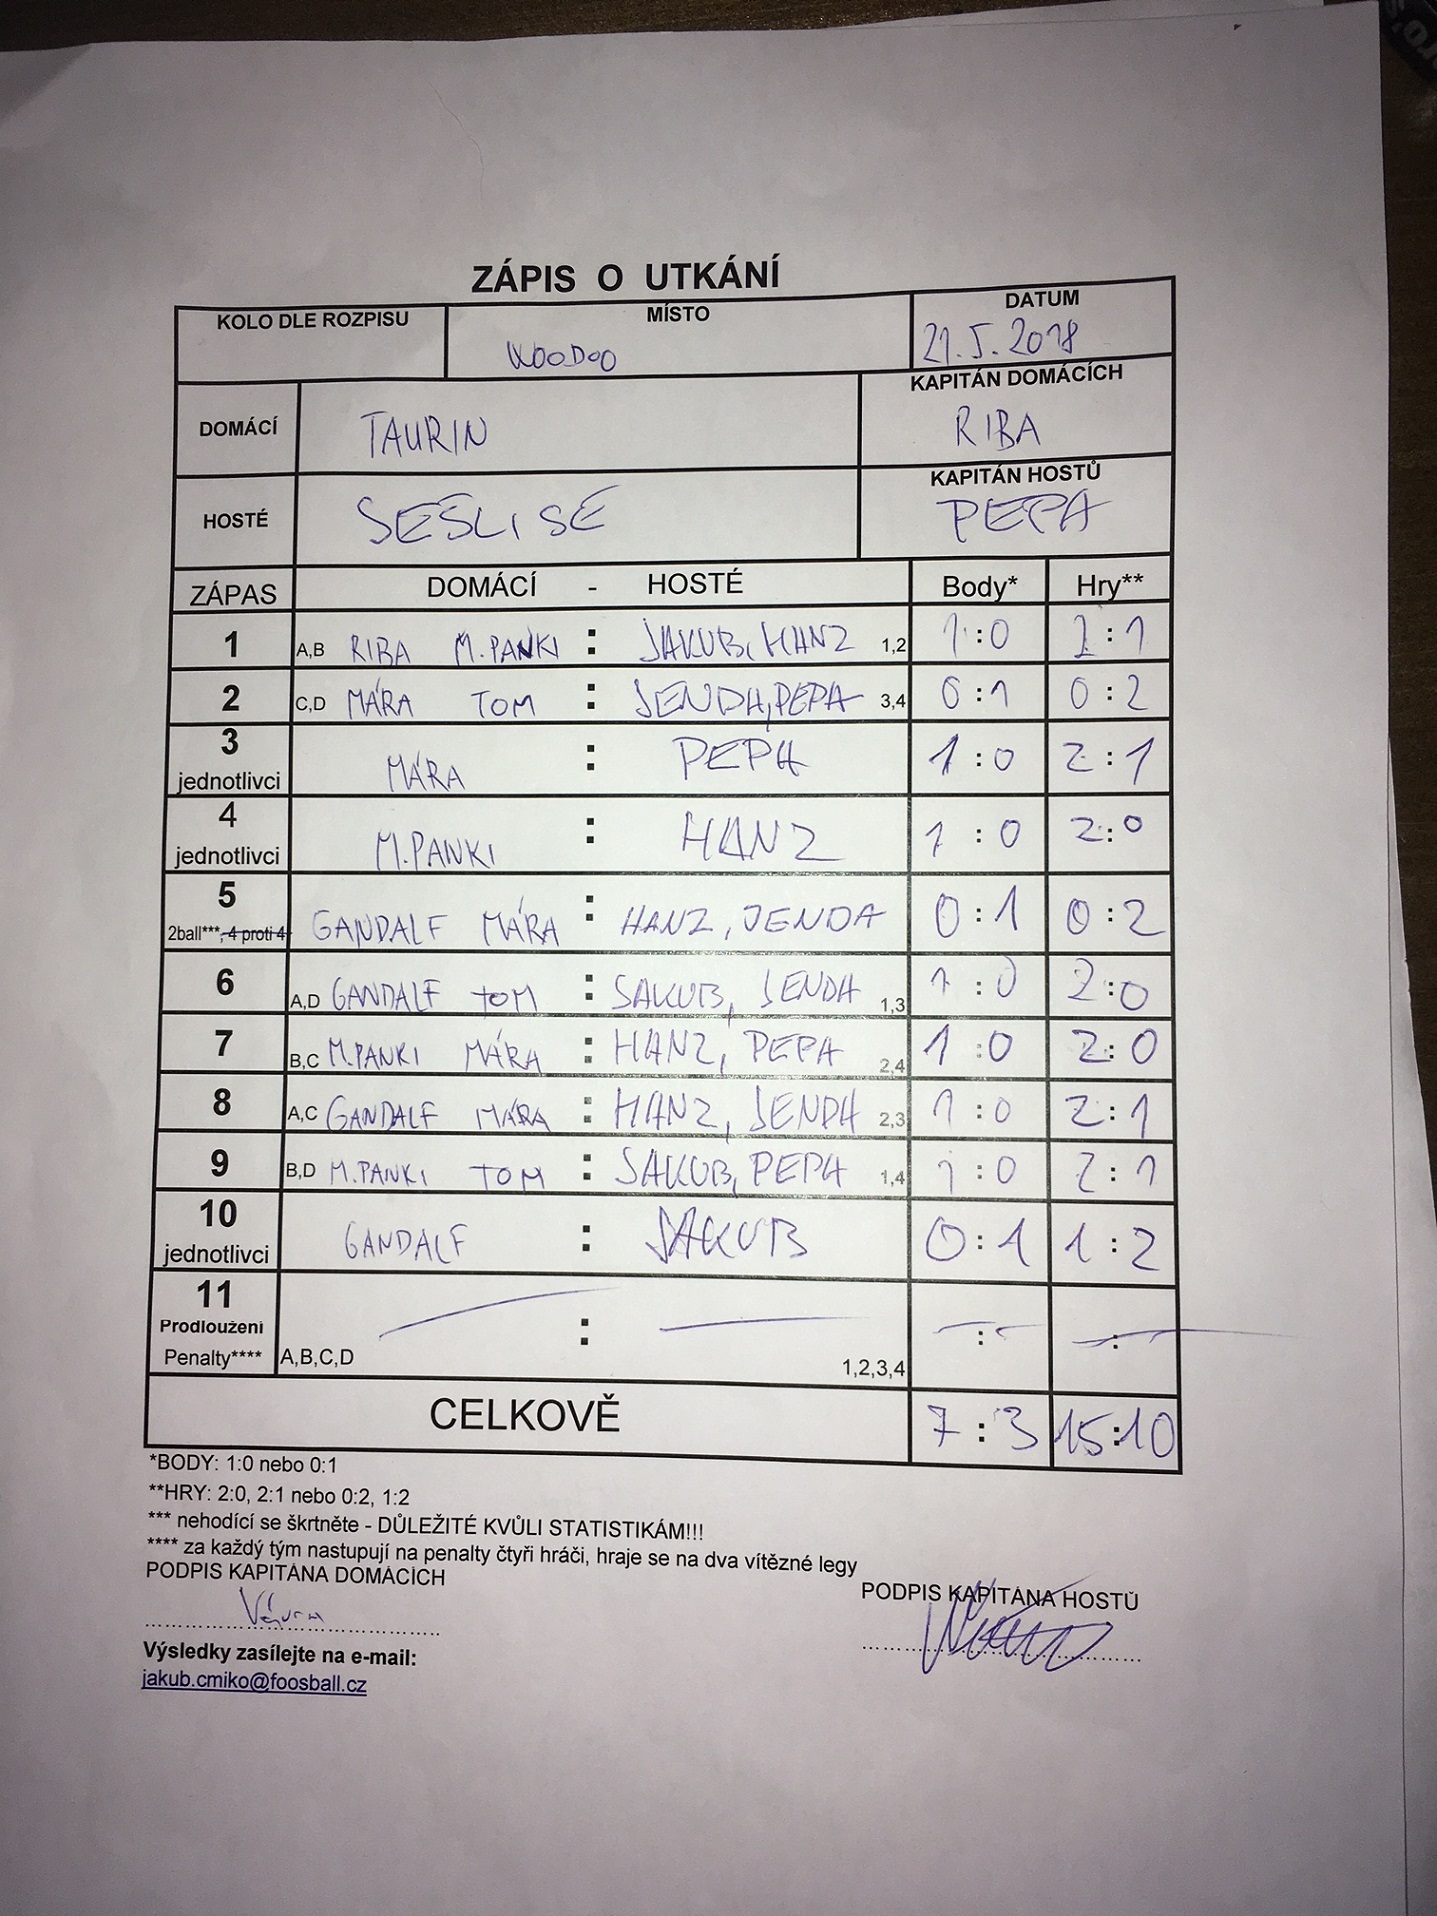 ZÁPIS O UTKÁNÍ
KOLO DLE ROZPISU MÍSTO DATUM
WOODOO 21.5.2018
DOMÁCÍ TAURIN KAPITÁN DOMÁCÍCH
RIBA
HOSTÉ SEŠLI SE KAPITÁN HOSTŮ
PEPA
ZÁPAS DOMÁCÍ - HOSTÉ Body* Hry**
1 A,B RIBA M.PANKI : JAKUB, HANZ 1,2 1:0 2:1
2 C,D MÁRA TOM : JENDA, PEPA 3,4 0:1 0:2
3 jednotlivci MÁRA : PEPA 1:0 2:1
4 jednotlivci M.PANKI : HANZ 1:0 2:0
5 2ball***, 4 proti 4 GANDALF MÁRA : HANZ, JENDA 0:1 0:2
6 A,D GANDALF TOM : JAKUB, JENDA 1,3 1:0 2:0
7 B,C M.PANKI MÁRA : HANZ, PEPA 2,4 1:0 2:0
8 A,C GANDALF MÁRA : HANZ, JENDA 2,3 1:0 2:1
9 B,D M.PANKI TOM : JAKUB, PEPA 1,4 1:0 2:1
10 jednotlivci GANDALF : JAKUB 0:1 1:2
11 Prodloužení : : :
Penalty**** A,B,C,D 1,2,3,4
CELKOVĚ 7:3 15:10
*BODY: 1:0 nebo 0:1
**HRY: 2:0, 2:1 nebo 0:2, 1:2
*** nehodící se škrtněte - DŮLEŽITÉ KVŮLI STATISTIKÁM!!!
**** za každý tým nastupují na penalty čtyři hráči, hraje se na dva vítězné legy
PODPIS KAPITÁNA DOMÁCÍCH PODPIS KAPITÁNA HOSTŮ
Výsledky zasílejte na e-mail:
jakub.cmiko@foosball.cz